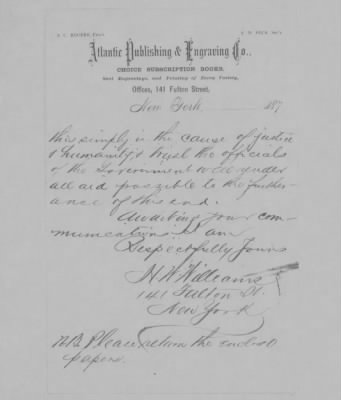 S. C. ROGERS, Pres't.
S. M. PECK, Sec'y.
Atlantic Publishing & Engraving Co.,
CHOICE SUBSCRIPTION BOOKS.
Steel Engravings, and Printing of Every Variety,
Offices, 141 Fulton Street,
New York, 187
this simply in the cause of justice
& humanity & trust the officials
of the Government will render
all aid possible to the further-
ance of this end.
Awaiting your com-
munications I am
Respectfully Yours
H W Williams
141 Fulton St.
New York
N.B. Please return the enclosed
papers.